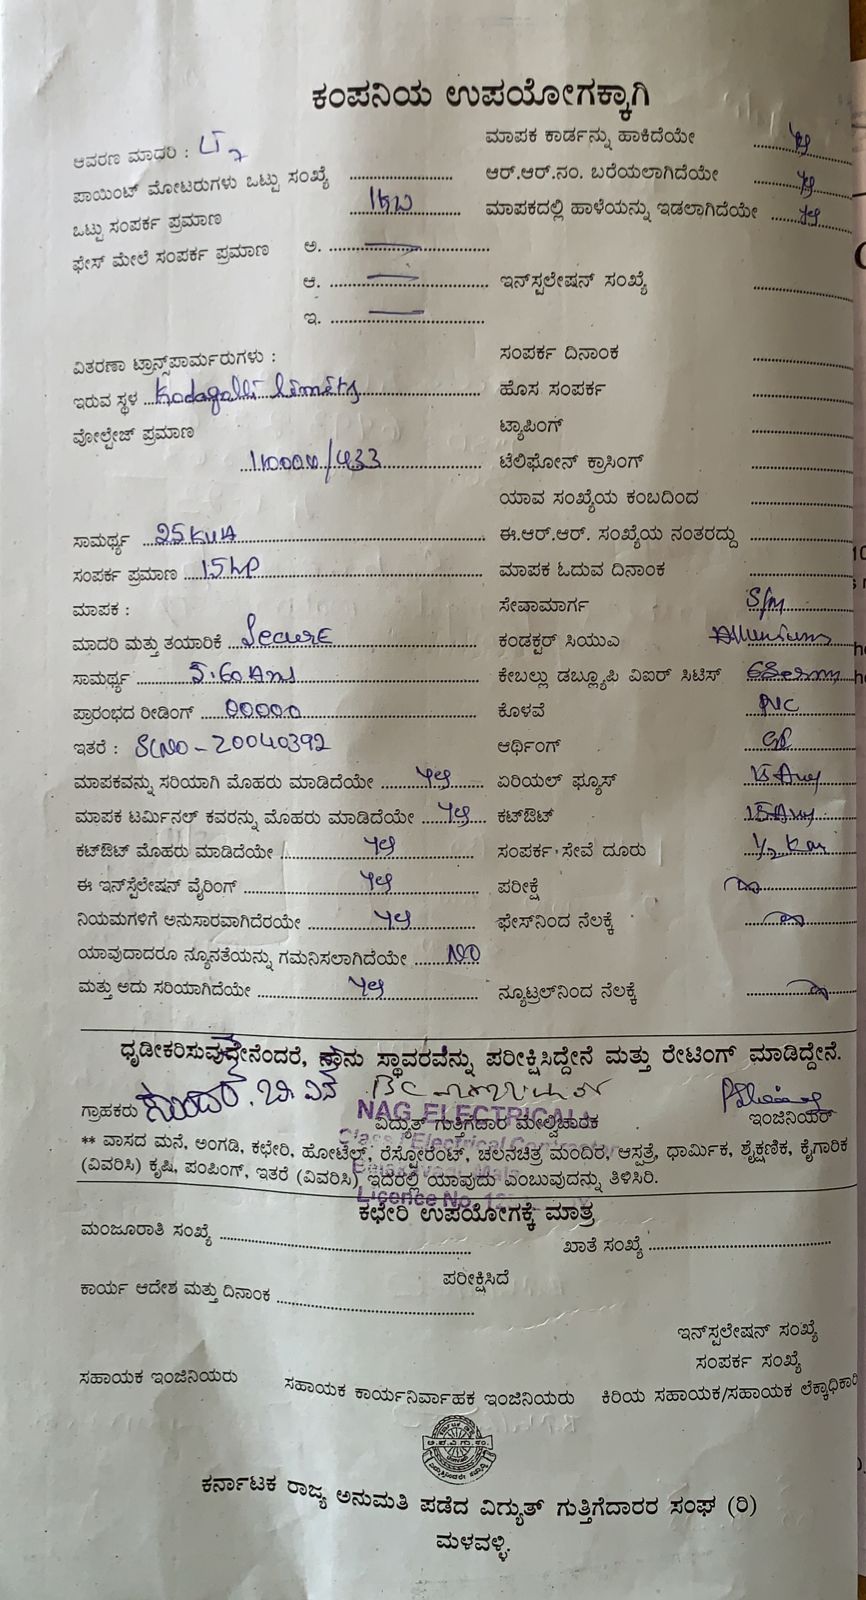 ಕಂಪನಿಯ ಉಪಯೋಗಕ್ಕಾಗಿ
ಆವರಣ ಮಾದರಿ : LT 7
ಮಾಪಕ ಕಾರ್ಡನ್ನು ಹಾಕಿದೆಯೇ
ಪಾಯಿಂಟ್ ಮೋಟರುಗಳು ಒಟ್ಟು ಸಂಖ್ಯೆ
ಆರ್.ಆರ್.ನಂ. ಬರೆಯಲಾಗಿದೆಯೇ
ಒಟ್ಟು ಸಂಪರ್ಕ ಪ್ರಮಾಣ
ಮಾಪಕದಲ್ಲಿ ಹಾಳೆಯನ್ನು ಇಡಲಾಗಿದೆಯೇ
ಫೇಸ್ ಮೇಲೆ ಸಂಪರ್ಕ ಪ್ರಮಾಣ ಅ.
ಆ. ಇನ್‌ಸ್ಟಲೇಷನ್ ಸಂಖ್ಯೆ
ಇ.
ವಿತರಣಾ ಟ್ರಾನ್ಸ್‌ಫಾರ್ಮರುಗಳು : ಸಂಪರ್ಕ ದಿನಾಂಕ
ಇರುವ ಸ್ಥಳ Kodagalli limits ಹೊಸ ಸಂಪರ್ಕ
ವೋಲ್ಟೇಜ್ ಪ್ರಮಾಣ ಟ್ಯಾಪಿಂಗ್
11000/433 ಟೆಲಿಫೋನ್ ಕ್ರಾಸಿಂಗ್
ಯಾವ ಸಂಖ್ಯೆಯ ಕಂಬದಿಂದ
ಸಾಮರ್ಥ್ಯ 25KVA ಈ.ಆರ್.ಆರ್. ಸಂಖ್ಯೆಯ ನಂತರದ್ದು
ಸಂಪರ್ಕ ಪ್ರಮಾಣ 15HP ಮಾಪಕ ಓದುವ ದಿನಾಂಕ
ಮಾಪಕ : ಸೇವಾಮಾರ್ಗ S/m
ಮಾದರಿ ಮತ್ತು ತಯಾರಿಕೆ Secure ಕಂಡಕ್ಟರ್ ಸಿಯುಎ
ಸಾಮರ್ಥ್ಯ 5-60 Ams ಕೇಬಲ್ಲು ಡಬ್ಲ್ಯೂಪಿ ವಿಐರ್ ಸಿಟಿಸ್
ಪ್ರಾರಂಭದ ರೀಡಿಂಗ್ 00000 ಕೊಳವೆ PVC
ಇತರೆ : SLNO - 20040392 ಆರ್ಥಿಂಗ್
ಮಾಪಕವನ್ನು ಸರಿಯಾಗಿ ಮೊಹರು ಮಾಡಿದೆಯೇ yes ಏರಿಯಲ್ ಫ್ಯೂಸ್ 15 Amp
ಮಾಪಕ ಟರ್ಮಿನಲ್ ಕವರನ್ನು ಮೊಹರು ಮಾಡಿದೆಯೇ yes ಕಟ್‌ಔಟ್ 15 Amp
ಕಟ್‌ಔಟ್ ಮೊಹರು ಮಾಡಿದೆಯೇ yes ಸಂಪರ್ಕ ಸೇವೆ ದೂರು
ಈ ಇನ್‌ಸ್ಟೆಲೇಷನ್ ವೈರಿಂಗ್ yes ಪರೀಕ್ಷೆ
ನಿಯಮಗಳಿಗೆ ಅನುಸಾರವಾಗಿದೆರಯೇ yes ಫೇಸ್‌ನಿಂದ ನೆಲಕ್ಕೆ
ಯಾವುದಾದರೂ ನ್ಯೂನತೆಯನ್ನು ಗಮನಿಸಲಾಗಿದೆಯೇ NO
ಮತ್ತು ಅದು ಸರಿಯಾಗಿದೆಯೇ yes ನ್ಯೂಟ್ರಲ್‌ನಿಂದ ನೆಲಕ್ಕೆ
ಧೃಡೀಕರಿಸುವುದೇನೆಂದರೆ, ನಾನು ಸ್ಥಾವರವನ್ನು ಪರೀಕ್ಷಿಸಿದ್ದೇನೆ ಮತ್ತು ರೇಟಿಂಗ್ ಮಾಡಿದ್ದೇನೆ.
ಗ್ರಾಹಕರು ವಿದ್ಯುತ್ ಗುತ್ತಿಗೆದಾರ ಮೇಲ್ವಿಚಾರಕ ಇಂಜಿನಿಯರ್
NAG ELECTRICAL
Class I Electrical Contractor
Licence No.
** ವಾಸದ ಮನೆ, ಅಂಗಡಿ, ಕಛೇರಿ, ಹೋಟೆಲ್, ರೆಸ್ಟೋರೆಂಟ್, ಚಲನಚಿತ್ರ ಮಂದಿರ, ಆಸ್ಪತ್ರೆ, ಧಾರ್ಮಿಕ, ಶೈಕ್ಷಣಿಕ, ಕೈಗಾರಿಕೆ
(ವಿವರಿಸಿ) ಕೃಷಿ, ಪಂಪಿಂಗ್, ಇತರೆ (ವಿವರಿಸಿ) ಇದರಲ್ಲಿ ಯಾವುದು ಎಂಬುವುದನ್ನು ತಿಳಿಸಿರಿ.
ಕಛೇರಿ ಉಪಯೋಗಕ್ಕೆ ಮಾತ್ರ
ಮಂಜೂರಾತಿ ಸಂಖ್ಯೆ ಖಾತೆ ಸಂಖ್ಯೆ
ಕಾರ್ಯ ಆದೇಶ ಮತ್ತು ದಿನಾಂಕ ಪರೀಕ್ಷಿಸಿದೆ
ಇನ್‌ಸ್ಟಲೇಷನ್ ಸಂಖ್ಯೆ
ಸಂಪರ್ಕ ಸಂಖ್ಯೆ
ಸಹಾಯಕ ಇಂಜಿನಿಯರು ಸಹಾಯಕ ಕಾರ್ಯನಿರ್ವಾಹಕ ಇಂಜಿನಿಯರು ಕಿರಿಯ ಸಹಾಯಕ/ಸಹಾಯಕ ಲೆಕ್ಕಾಧಿಕಾರಿ
ಕರ್ನಾಟಕ ರಾಜ್ಯ ಅನುಮತಿ ಪಡೆದ ವಿದ್ಯುತ್ ಗುತ್ತಿಗೆದಾರರ ಸಂಘ (ರಿ)
ಮಳವಳ್ಳಿ.